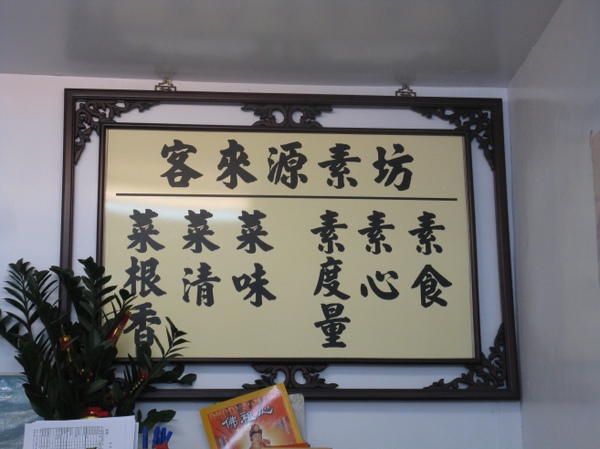 客來源素坊
素食
素心
素度量
菜味
菜清
菜根香
佛祖心